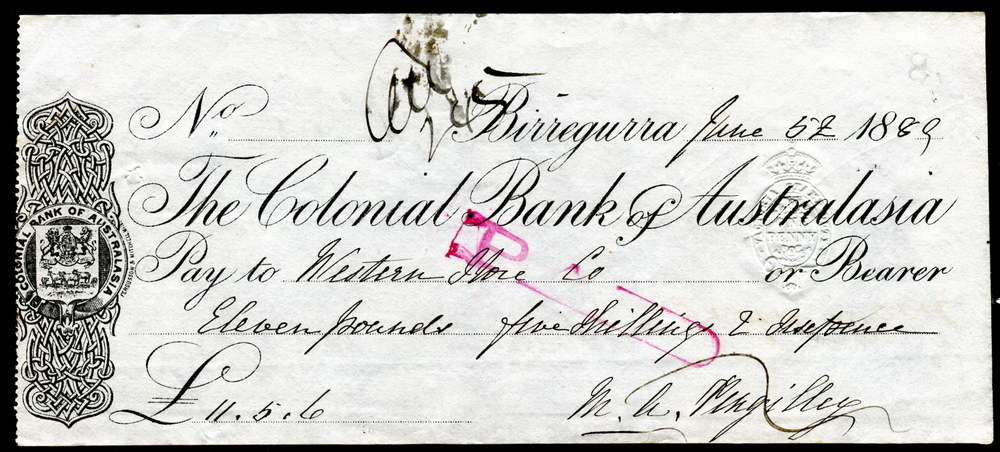 No Birregurra June 5th 1889
The Colonial Bank of Australasia
Pay to Western Store Co or Bearer
Eleven pounds five Shillings &
£ 11.5.6 M. A.
COLONIAL BANK OF AUSTRALASIA
PENNY